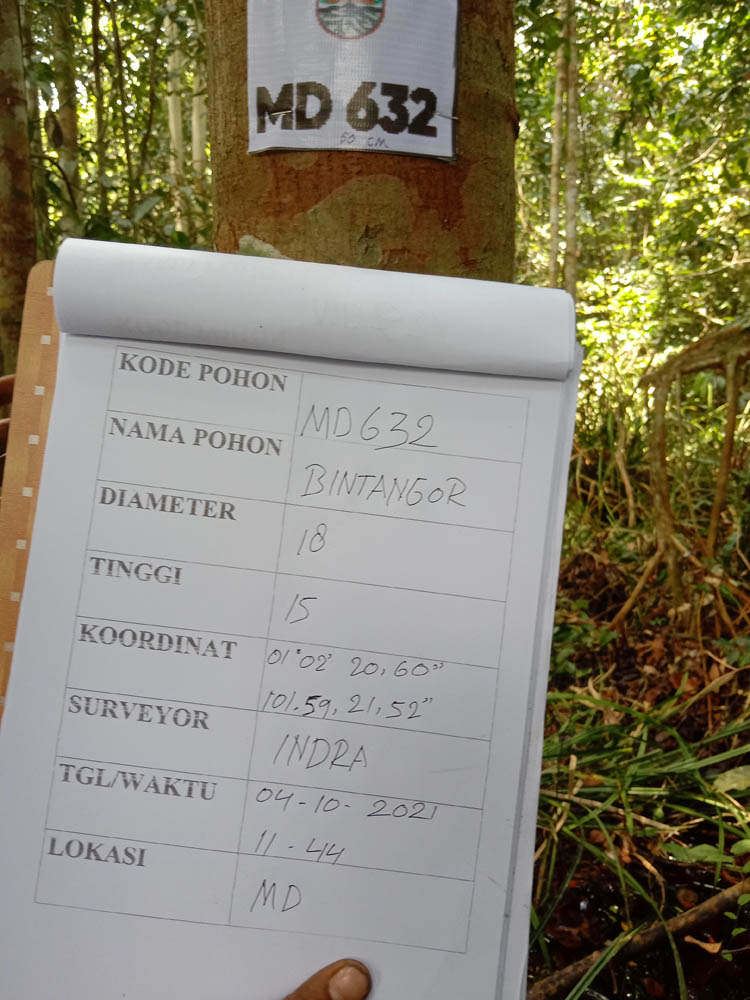 MD 632
50 CM
KODE POHON MD632
NAMA POHON BINTANGOR
DIAMETER 18
TINGGI 15
KOORDINAT 01°02' 20,60"
101.59, 21, 52"
SURVEYOR INDRA
TGL/WAKTU 04-10-2021
11-44
LOKASI MD